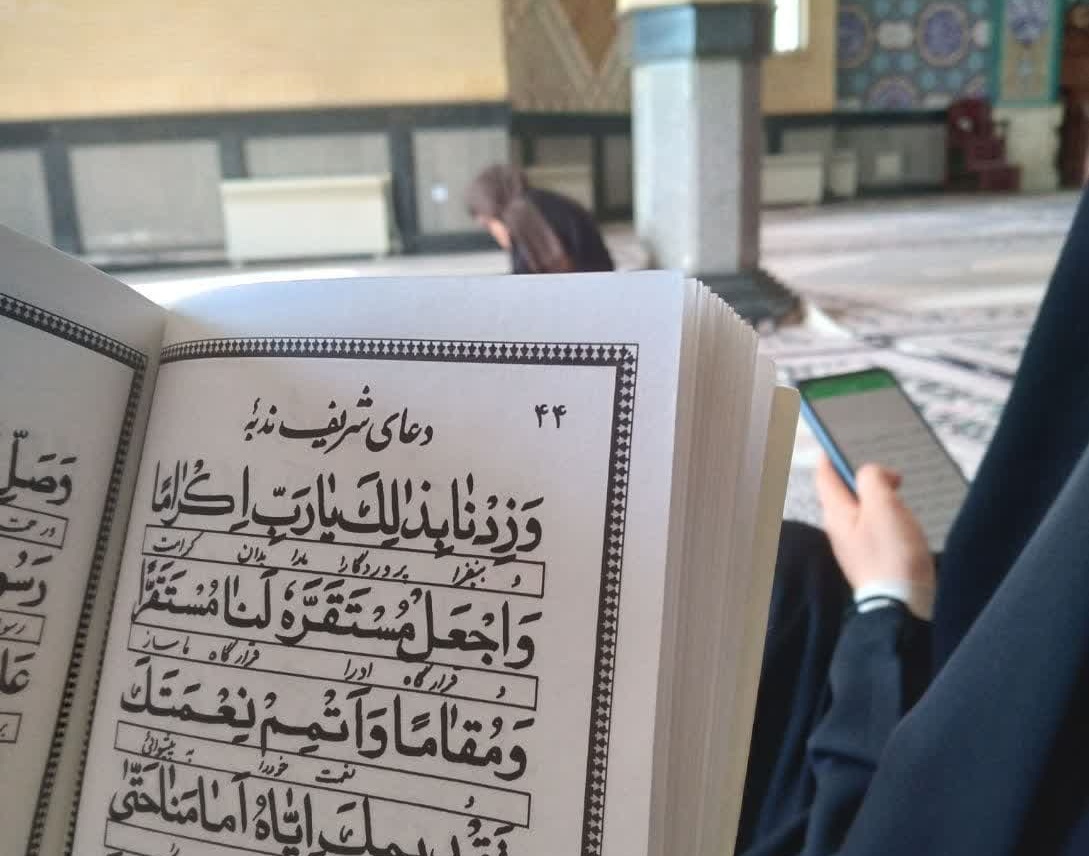 ۴۴
دعای شریف ندبهٔ
وَزِدْنا بِذٰلِكَ يٰارَبِّ اِكْرٰامًا
و بیفزا پروردگارا مدا بدان کرامت
وَاجْعَلْ مُسْتَقَرَّهُ لَنٰا مُسْتَقَرًّا
و قرارگاه اورا قرارگاه ماساز
وَمُقٰامًا وَاَتْمِمْ نِعْمَتَكَ
نعمت خودرا به پیشوائی
بِتَقْديمِكَ اِيّٰاهُ اَمٰامَنٰا حَتّٰى
وَصَلِّ
رَسُو
رسو
عَلى